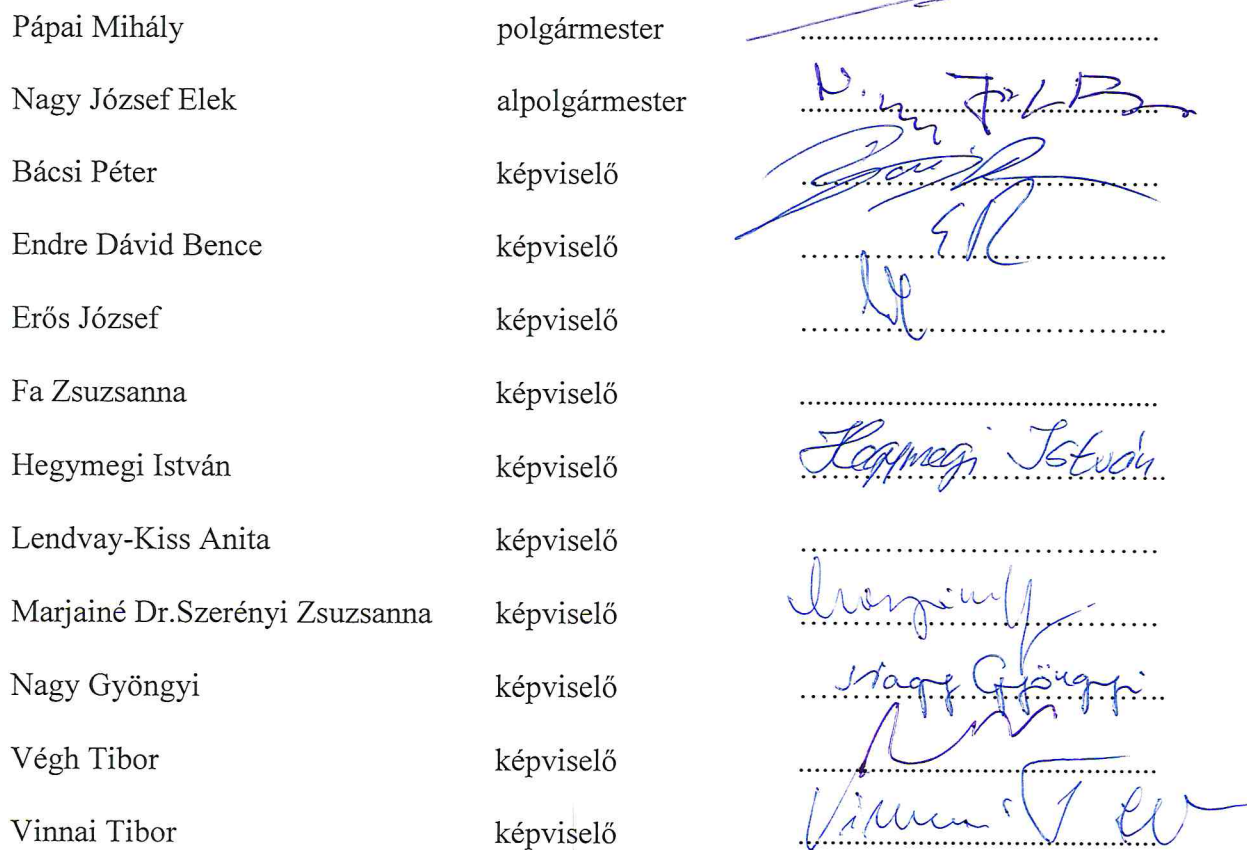 Pápai Mihály polgármester ........................................
Nagy József Elek alpolgármester ........................................
Bácsi Péter képviselő ........................................
Endre Dávid Bence képviselő ........................................
Erős József képviselő ........................................
Fa Zsuzsanna képviselő ........................................
Hegymegi István képviselő Hegymegi István
Lendvay-Kiss Anita képviselő ........................................
Marjainé Dr.Szerényi Zsuzsanna képviselő ........................................
Nagy Gyöngyi képviselő Nagy Gyöngyi
Végh Tibor képviselő ........................................
Vinnai Tibor képviselő ........................................